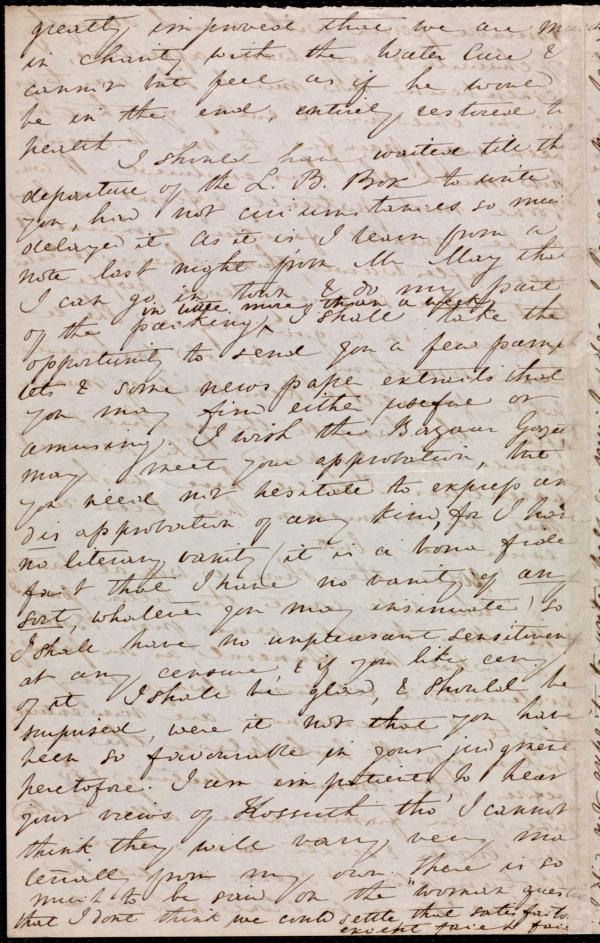 greatly improved that we are
in charity with the Water Cure &
cannot but feel as if he would
be in the end, entirely restored to
health.
I should have waited till the
departure of the L. B. Box to write
you, had not circumstances so
delayed it. As it is, I learn from a
note last night from Mr May that
I can go in town & do my part
in little more than a week,
of the packing, I shall take the
opportunity to send you a few pamph
lets & some newspaper extracts that
you may find either useful or
amusing. I wish the Bazaar Gaze
may meet your approbation, but
you need not hesitate to express an
disapprobation of any kind, for I have
no literary vanity (it is a bona fide
fact that I have no vanity of any
sort, whatever you may insinuate) so
I shall have no unpleasant sensitiven
at any censure, & if you like any
of it I shall be glad, & should be
surprised, were it not that you have
been so favourable in your judgment
heretofore. I am impatient to hear
your views of Kossuth, tho' I cannot
think they will vary very ma
terially from my own. There is so
much to be said on the "woman quest
that I dont think we could settle that satisfacto
except face to face